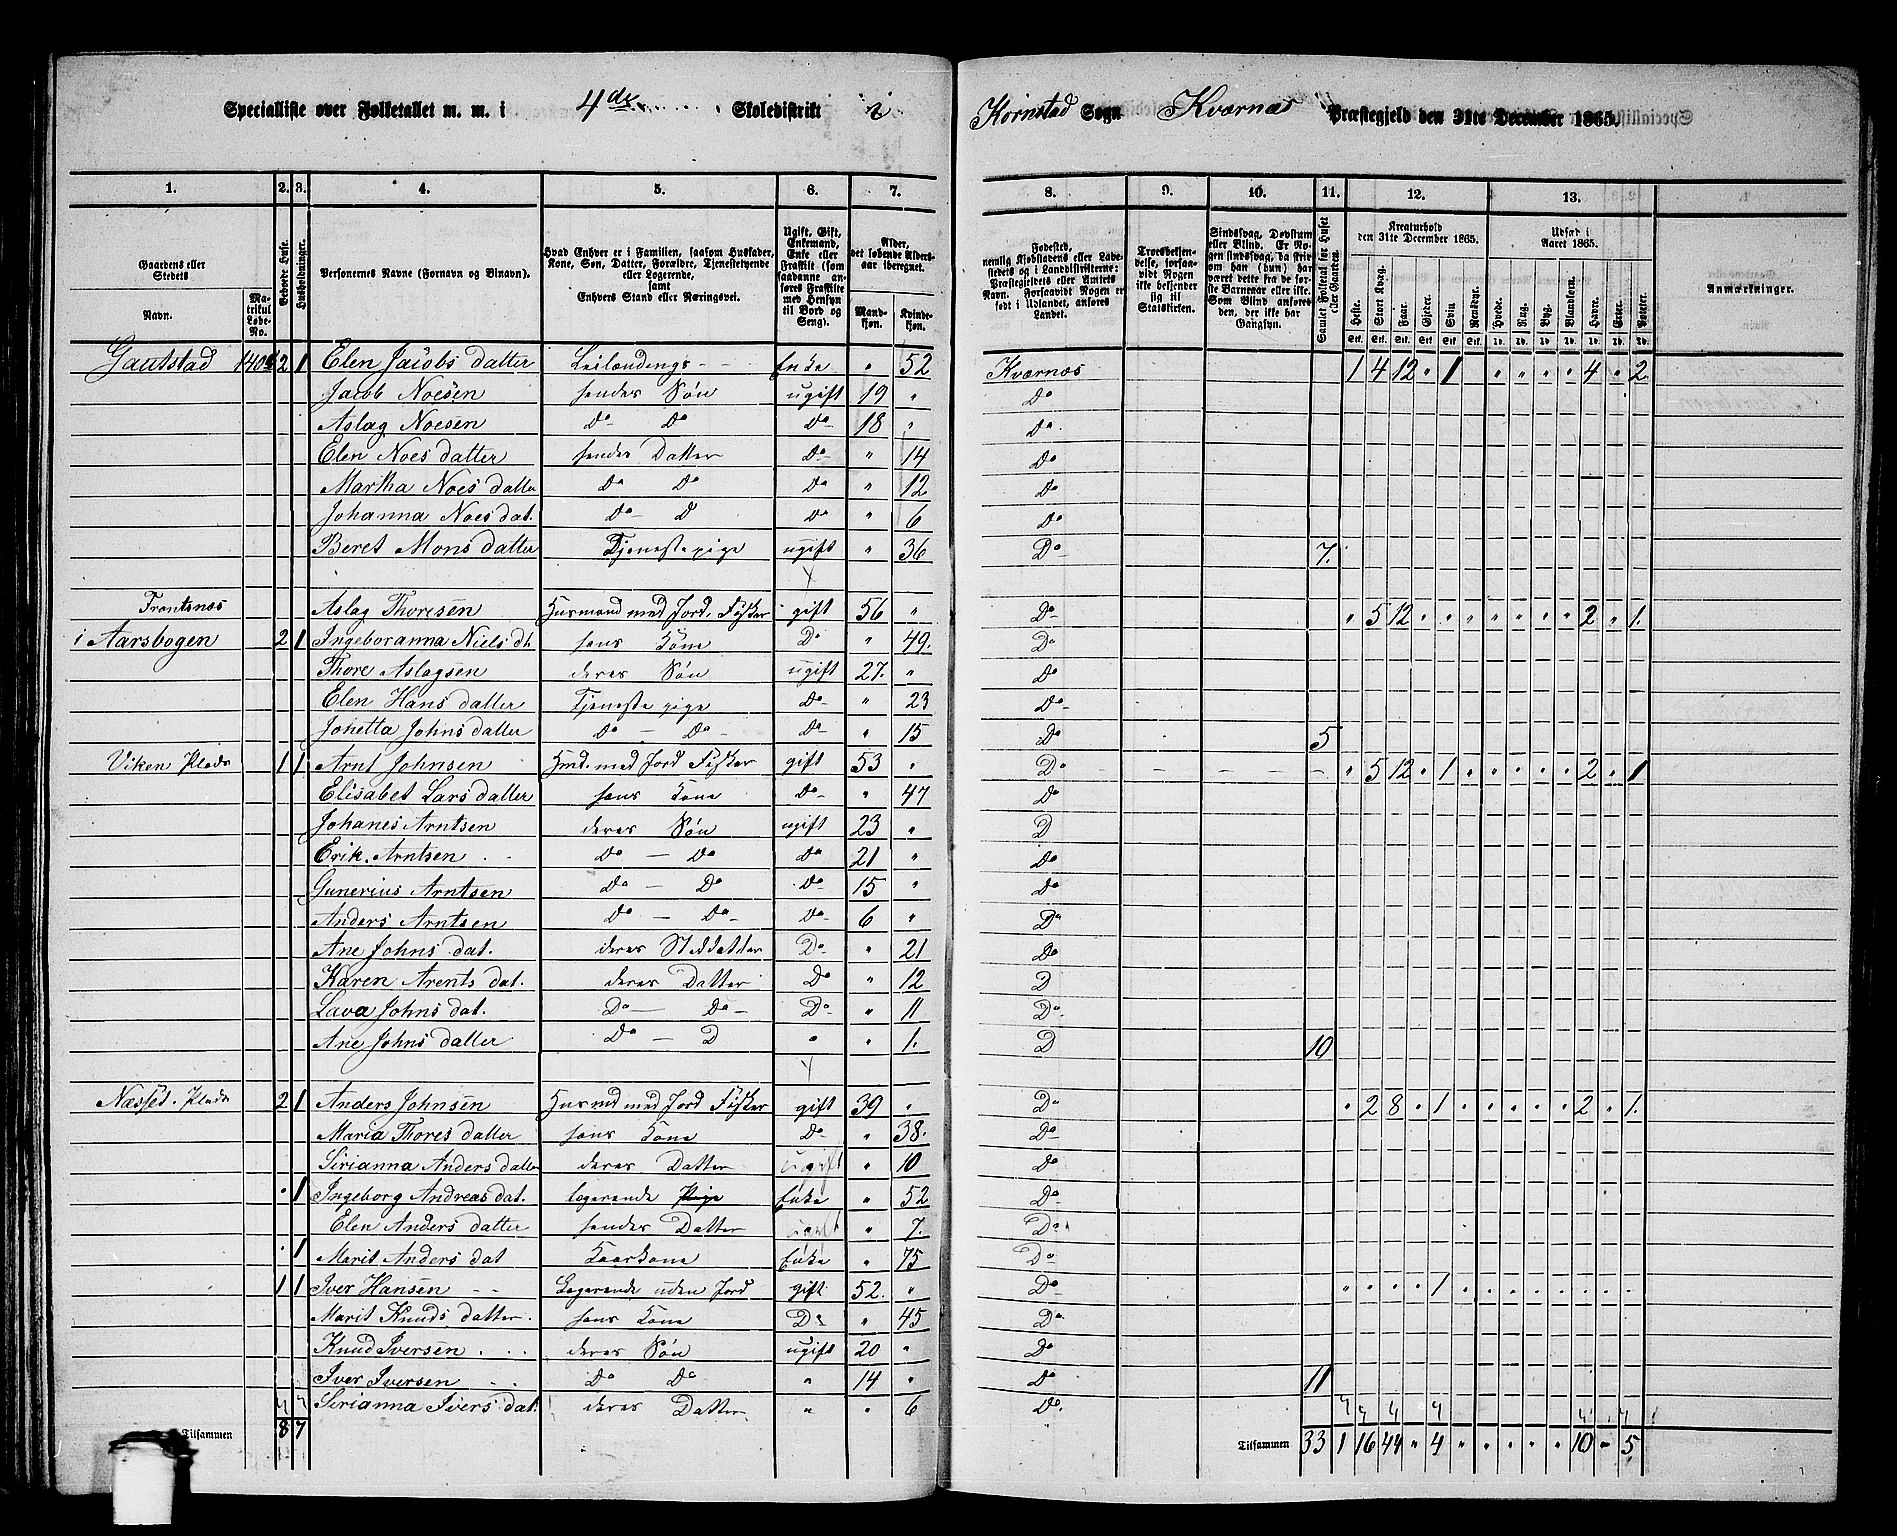 Specialliste over Folketallet m. m. i 4de Skoledistrikt i Kornstad Sogn Kværnæs Præstegjeld den 31te December 1865.
1. 2. 3. 4. 5. 6. 7. 8. 9. 10. 11. 12. 13.
Gaardens eller Stedets Navn. Matrikul Løbe-No. Beboede Huse. Husholdninger. Personernes Navne (Fornavn og Binavn). Hvad Enhver er i Familien, saasom Husfader, Kone, Søn, Datter, Forældre, Tjenestetyende eller Logerende, samt Enhvers Stand eller Næringsvei. Ugift, Gift, Enkemand, Enke eller Fraskilt (som saadanne anføres Fraskilte med Hensyn til Bord og Seng). Alder, det løbende Aldersaar iberegnet. Mandkjøn. Kvindekjøn.
Fødested, nemlig Kjøbstadens eller Ladestedets og i Landdistrikterne: Præstegjeldets eller Amtets Navn. Forsaavidt Nogen er født i Udlandet, anføres Landet. Troesbekjendelse, forsaavidt Nogen ikke bekjender sig til Statskirken. Sindssvag, Døvstum eller Blind. Er Nogen sindssvag, da skrives om han (hun) har været dette fra de første Barneaar eller ikke. Som Blind anføres den, der ikke har Gangsyn. Samlet Folketal for Huset eller Gaarden. Kreaturhold den 31te December 1865. Udsæd i Aaret 1865. Anmærkninger.
Heste. Stort Kvæg. Faar. Gjeder. Svin. Rensdyr. Hvede. Rug. Byg. Blandkorn. Havre. Erter. Poteter.
Gautstad 140 2 1 Elen Jacobs datter Leilændings - Enke " 52 Kværnæs 1 4 12 " 1 " " " " 4 " 2
Jacob Noesen hendes Søn ugift 19 " Do
Aslag Noesen Do Do Do 18 " Do
Elen Noes datter hendes Datter Do " 14 Do
Martha Noes datter Do Do Do " 12 Do
Johanna Noes dat. Do D Do " 6 Do
Beret Mons datter Tjenestepige ugift " 36 Do 7.
Aslag Thoresen Husmand med Jord. Fisker gift 56 " Do " 5 12 " " " " " " " 2 " 1.
i Aarsbogen 2 1 Ingeboranna Niels dt. hans Kone Do " 49. Do
Thore Aslagsen deres Søn ugift 27. " Do
Elen Hans datter Tjeneste pige Do " 23 Do
Johetta Johns datter Do - Do Do " 15 Do 5
Viken Plads 1 1 Arnt Johnsen Hmd. med Jord Fisker gift 53 " Do " 5 12 " 1 " " " " " 2 " 1
Elisabet Lars datter hans Kone Do " 47 Do
Johanes Arntsen deres Søn ugift 23 " D
Erik Arntsen Do - Do Do 21 " Do
Gunerius Arntsen Do - Do Do 15 " Do
Anders Arntsen Do - Do Do 6 " Do
Ane Johns dat. deres Steddatter Do " 21 Do
Karen Arents dat. deres Datter Do " 12 D
Lava Johns dat. Do - Do Do " 11 Do
Ane Johns datter Do - D " " 1. D 10
Næsset Plads 2 1 Anders Johnsen Husmd med Jord Fisker gift 39 " Do " 2 8 " 1 " " " " " 2 " 1.
Maria Thores datter hans Kone Do " 38. Do
Sirianna Anders datter deres Datter ugift " 10 Do
" 1 Ingeborg Andreas dat. logerende Pige Enke " 52 Do
Elen Anders datter hendes Datter ugift " 7. Do
" 1 Marit Anders dat Kaarkone Enke " 75 Do
1 1 Iver Hansen - - Logerende uden Jord gift 52. " Do " " " " 1 " " " " " " " "
Marit Knuds datter. hans Kone Do " 45 Do
Knud Iversen deres Søn ugift 20 " Do
Iver Iversen Do Do " 14 " Do 11
Sirianna Ivers dat. deres Datter " " 6 Do.
Tilsammen 8 7 Tilsammen 33 1 16 44 " 4 " " " " " 10 " 5